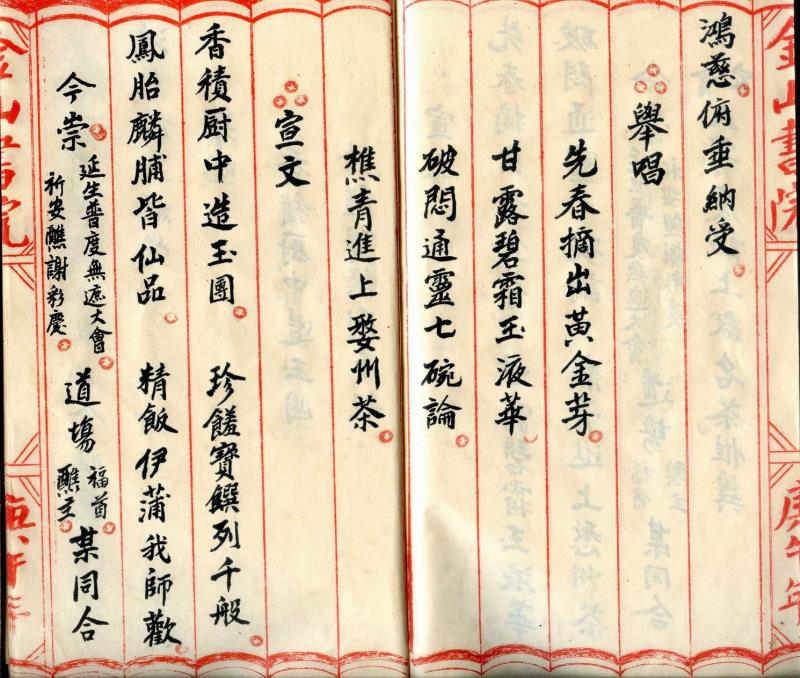 金山書院
庚午年
鴻慈俯垂納受
舉唱
先春摘出黃金芽
甘露碧霜玉液華
破悶通靈七碗論
樵青進上婺州茶
宣文
香積厨中造玉團 珍饈寶饌列千般
鳳胎麟脯皆仙品 精飯伊蒲我師歡
今崇 延生普度無遮大會 祈安醮謝彩慶 道場 福首 醮主 某同合
金山書院
庚午年